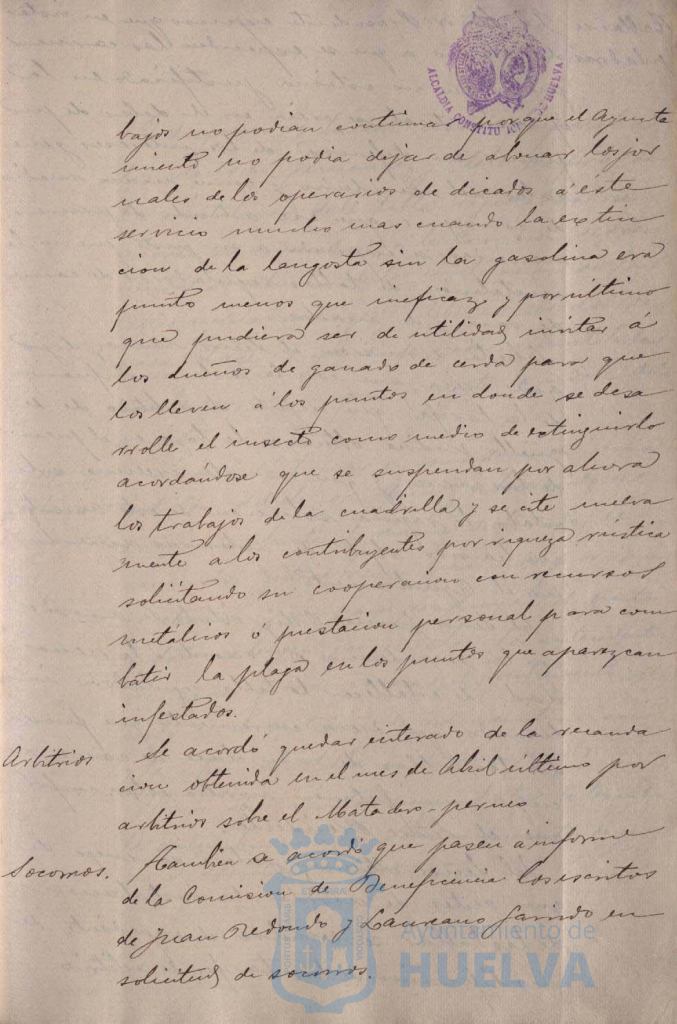 ALCALDIA CONSTITUCIONAL DE HUELVA
bajos no podian continuar porque el Ayunta
miento no podia dejar de abonar los jor
nales de los operarios de dicados á éste
servicio mucho mas cuando la extin
cion de la langosta sin la gasolina era
punto menos que ineficaz, y por último
que pudiera ser de utilidad invitar á
los dueños de ganado de cerda para que
los lleven á los puntos en donde se desa
rrolle el insecto como medio de extinguirlo
acordándose que se suspendan por ahora
los trabajos de la cuadrilla y se cite nueva
mente á los contribuyentes por riqueza rústica
solicitando su cooperacion con recursos
metálicos ó prestacion personal para com
batir la plaga en los puntos que aparezcan
infestados.
Arbitrios Se acordó quedar enterado de la recauda
cion obtenida en el mes de Abril último por
arbitrios sobre el Matadero-perneo
Socorros. Tambien se acordó que pasen á informe
de la Comision de Beneficencia los escritos
de Juan Redondo y Laureano Garrido en
solicitud de socorros.
Ayuntamiento de
HUELVA